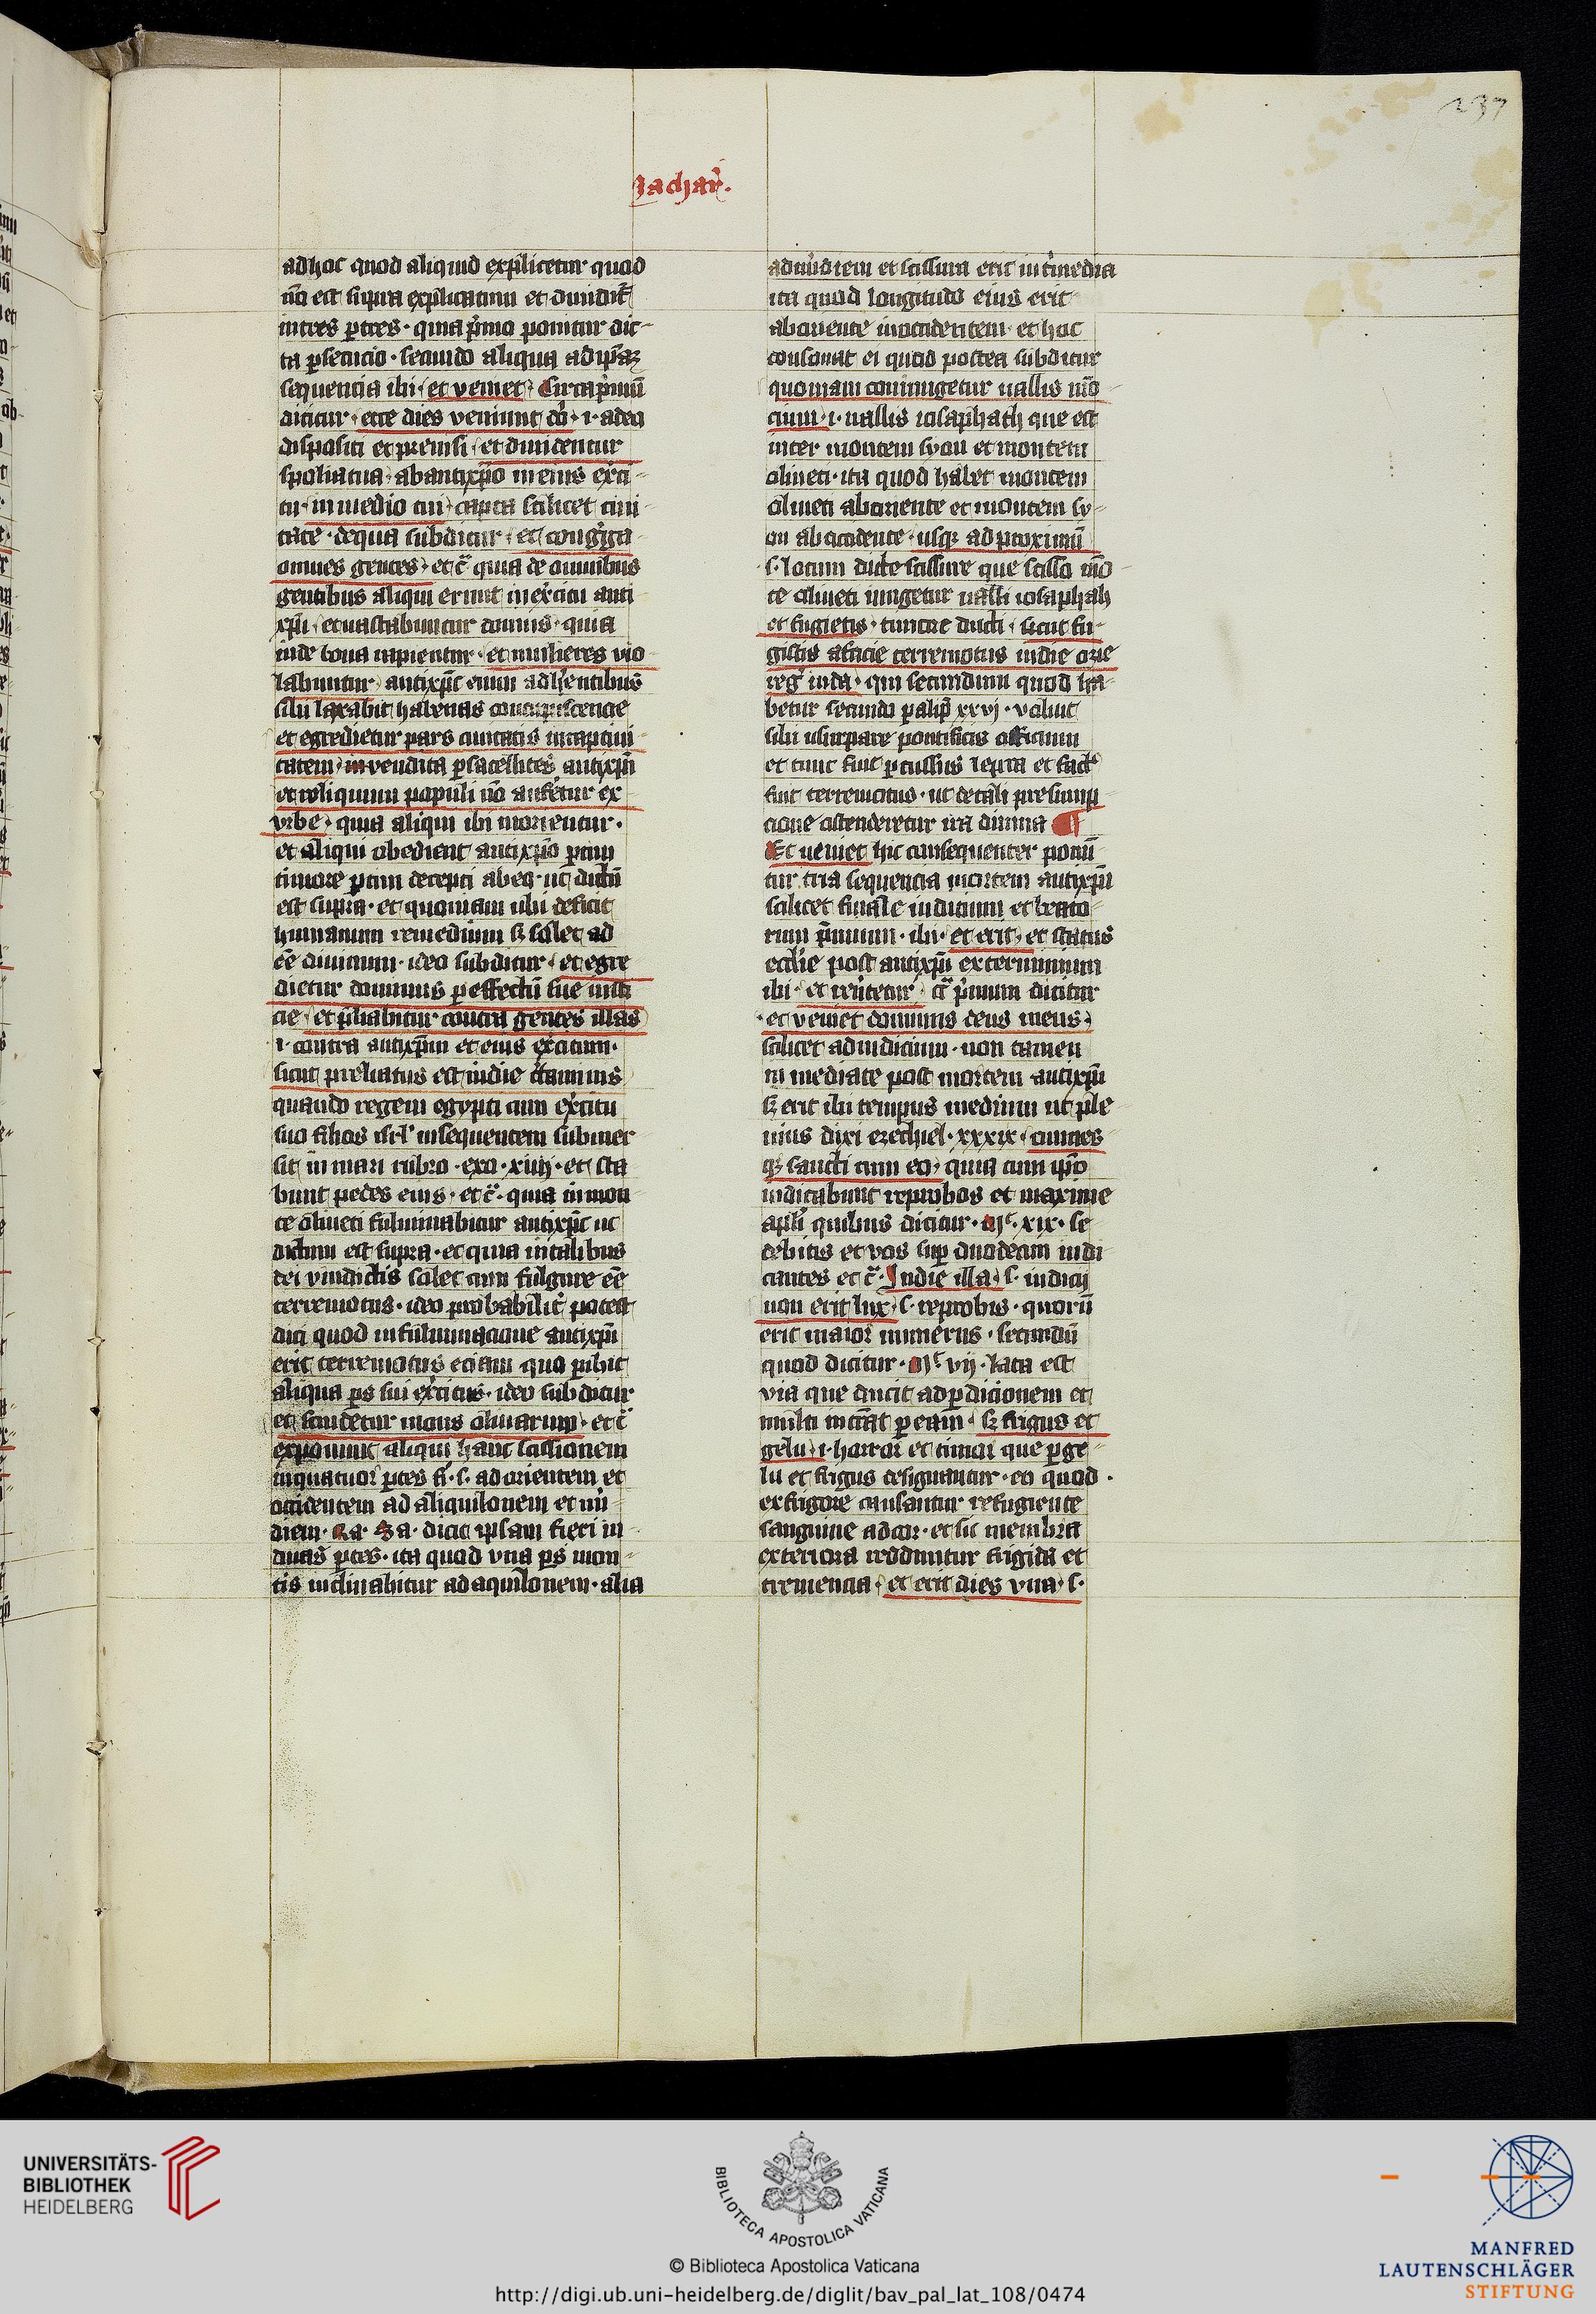 237
zachar̄.
adhoc quod aliquid explicetur quod
nō est supra explicatum et diuidit᷑
intres ꝑtes · quia p̄mo ponitur dic-
ta ꝑsecucio · secundo aliqua ad ip̄aꝫ
sequencia ibi · et veniet · Circa p̄mū
dicitur · ecce dies veniunt dn̄i · i · adeo
dispositi et premissi · et diuidentur
spoliatua · abantixp̄o in eius exci-
tu · in medio tui · capta scilicet ciui-
tate · dequa subditur · et congꝛega-
omnes gentes · etc̄ quia de omnibus
gentibus aliqui erunt inex̄citu anti
xp̄i · et uastabuntur domus · quia
inde bona rapientur · et mulieres vio
labuntur · antixp̄c enim adh̄entibus
sibi laxabit habenas concupiscencie
et egredietur pars ciuitatis incaptiui-
tatem · in vendita ꝑsatellites antixp̄i
et reliquum populi nō aufetur ex
vrbe · quia aliqui ibi morientur ·
et aliqui obedient antixp̄o ꝑtim
timore ꝑtim decepti abeo · ut dictū
est supra · et quoniam ubi deficit
humanum remedium sꝫ solet ad
eē diuinum · ideo subditur · et egre
dietur dominus ꝑ effectū sue iusti
cie · et p̄liabitur contra gentes illas
i · contra antixp̄m et eius ex̄citum ·
sicut preliatus est indie c̄taminis
quando regem egypti cum ex̄citu
suo filios isrl̄ insequentem submer
sit in mari rubro · exo · xiiij · et sta
bunt pedes eius · etc̄ · quia inmon
te oliueti fulminabitur antixp̄c ut
dictum est supra · et quia intalibus
dei vindictis solet cum fulgure eē
terremotus · ideo probabilit̄ potest
dici quod infulminacione antixp̄i
erit terremotus eciam quo ꝑibit
aliqua ꝑs sui ex̄citus · ideo subditur
et scindetur mons oliuarum · etc̄
exponunt aliqui hanc scissionem
inquatuor ꝑtes fi · s · ad orientem et
occidentem ad aliquilonem et mi
diem · Ra · Sa · dicit ipsam fieri in
duas ꝑtes · ita quod vna ꝑs mon-
tis inclinabitur ad aquilonem · alia
ad mi̅diem et scissura erit int̄media
ita quod longitudo eius erit
aboriente inoccidentem · et hoc
consonat ei quod postea subditur
quoniam coniungetur uallis mō-
cium · i · uallis iosaphath que est
inter montem syon et montem
oliueti · ita quod habet montem
oliueti aboriente et montem sy-
on ab occidente · usqꝫ ad proximū
s · locum dicte scissure que scisso mō-
te oliueti iungetur ualli iosaphah
et fugietis · timore ducti · sicut fu-
gistis afacie terremotus indie ozie
reg̅ iuda · qui secundum quod ha-
betur secundo ꝑalip̄ xxvj · voluit
sibi usurpare pontificis officium
et tunc fuit ꝑcussus lepra et factꝰ
fuit terremotus · ut detali presump
cione ostenderetur ira diuina ¶
Et veniet hic consequenter ponū
tur tria sequencia mortem antixp̄i
scilicet finale iudicium et beato-
rum p̄mium · ibi · et erit · et status
eccl̄ie post antixp̄i exterminium
ibi · et reu̅tetur · Cͣ p̄mum dicitur
· et veniet dominus deus meus ·
scilicet adiudicium · non tamen
in mediate post mortem antixp̄i
sꝫ erit ibi tempus medium ut ple-
nius dixi ezechiel · xxxix · omnes
qꝫ sancti cum eo · quia cum ip̄o
iudicabunt reprobos et maxime
apl̄i quibus dicitur · Mͭ · xix · se-
debitis et vos suꝑ duodecim iudi-
cantes et c̄ · Indie illa · s · iudicij
non erit lux · s · reprobis · quorū
erit maior numerus · secundū
quod dicitur · Mͭ vij · Lata est
via que ducit adꝑdicionem et
multi intrāt ꝑ eam · sꝫ frigus et
gelu · i · horror et timor que ꝑge-
lu et frigus designantur · eo quod ·
exfrigore causantur refugiente
sanguine adcor · et sic membra
exteriora redduntur frigida et
trementia · et erit dies vna · s ·
UNIVERSITÄTS-
BIBLIOTHEK
HEIDELBERG
BIBLIOTECA APOSTOLICA VATICANA
© Biblioteca Apostolica Vaticana
http://digi.ub.uni-heidelberg.de/diglit/bav_pal_lat_108/0474
MANFRED
LAUTENSCHLÄGER
STIFTUNG